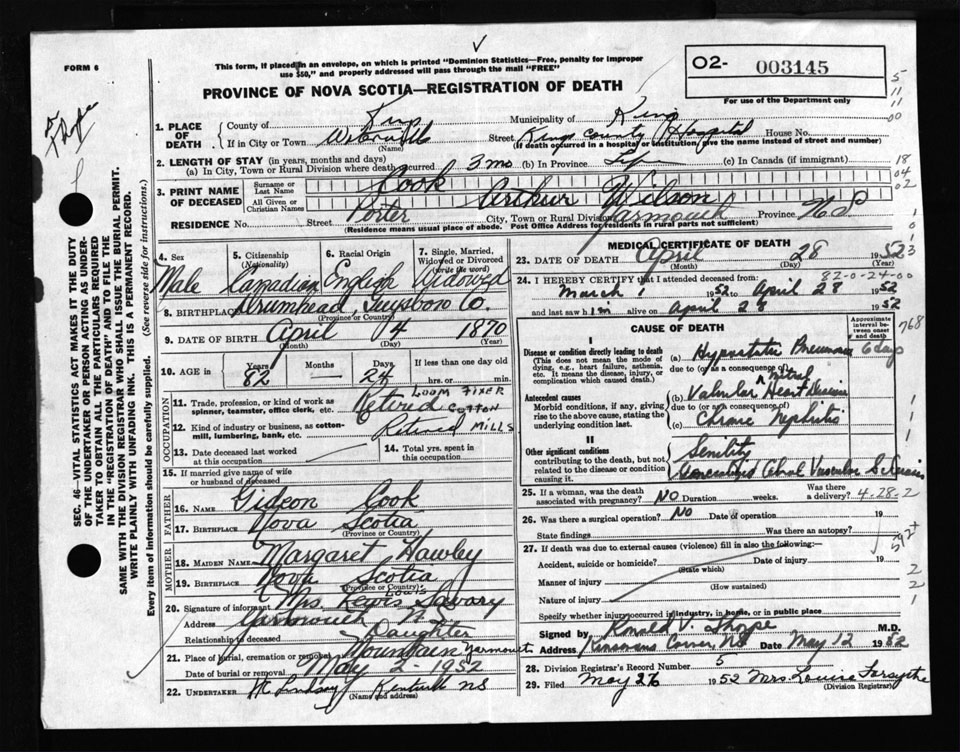 FORM 6
This form, if placed in an envelope, on which is printed "Dominion Statistics—Free, penalty for improper
use $50," and properly addressed will pass through the mail "FREE"
O2- 003145
For use of the Department only
PROVINCE OF NOVA SCOTIA—REGISTRATION OF DEATH
1. PLACE OF DEATH
County of Kings Municipality of Kings
If in City or Town Street Kings County Hospital House No.
(Name) (If death occurred in a hospital or institution, give the name instead of street and number)
2. LENGTH OF STAY (in years, months and days)
(a) In City, Town or Rural Division where death occurred 3 mo (b) In Province Life (c) In Canada (if immigrant)
3. PRINT NAME OF DECEASED
Surname or Last Name Cook
All Given or Christian Names Arthur Wilson
RESIDENCE No. Street Porter City, Town or Rural Division Yarmouth Province N.S
(Residence means usual place of abode. Post Office Address for residents in rural parts not sufficient)
4. Sex Male
5. Citizenship (Nationality) Canadian
6. Racial Origin English
7. Single, Married, Widowed or Divorced (write the word) Widowed
8. BIRTHPLACE Drumhead, Guysboro Co.
(Province or Country)
9. DATE OF BIRTH April 4 1870
(Month) (Day) (Year)
10. AGE in Years 82 Months — Days 24 If less than one day old
hrs. or min.
OCCUPATION
11. Trade, profession, or kind of work as
spinner, teamster, office clerk, etc. Retired LOOM FIXER
12. Kind of industry or business, as cotton-
mill, lumbering, bank, etc. Retired COTTON MILLS
13. Date deceased last worked
at this occupation
14. Total yrs. spent in
this occupation
15. If married give name of wife
or husband of deceased
FATHER
16. NAME Gideon Cook
17. BIRTHPLACE Nova Scotia
(Province or Country)
MOTHER
18. MAIDEN NAME Margaret Hawley
19. BIRTHPLACE Nova Scotia
(Province or Country)
20. Signature of informant Mrs. Lewis Savary
Louis
Address Yarmouth
Relationship to deceased Daughter
21. Place of burial, cremation or removal Mountain Yarmouth
Date of burial or removal May 2 - 1952
22. UNDERTAKER
(Name and address)
MEDICAL CERTIFICATE OF DEATH
23. DATE OF DEATH April 28 1952
(Month) (Day) (Year)
82-0-24-00
24. I HEREBY CERTIFY that I attended deceased from:
March 1 1952 to April 28 1952
and last saw him alive on April 28 1952
CAUSE OF DEATH
Approximate interval between onset and death
I
Disease or condition directly leading to death
(This does not mean the mode of
dying, e.g., heart failure, asthenia,
etc. It means the disease, injury, or
complication which caused death.)
(a) Hypostatic Pneumonia 6 days
due to (or as a consequence of)
Antecedent causes
Morbid conditions, if any, giving
rise to the above cause, stating the
underlying condition last.
(b) Valvular Mitral Heart Disease
due to (or as a consequence of)
(c) Chronic Nephritis
II
Other significant conditions
contributing to the death, but not
related to the disease or condition
causing it.
Senility
25. If a woman, was the death
associated with pregnancy? No Duration weeks. Was there
a delivery? 4-28-2
26. Was there a surgical operation? No Date of operation 19
State findings Was there an autopsy?
27. If death was due to external causes (violence) fill in also the following:—
Accident, suicide or homicide? Date of injury 19
(State which)
Manner of injury
(How sustained)
Nature of injury
Specify whether injury occurred in industry, in home, or in public place
Signed by Ronald V. Thorpe M.D.
Address Kinsmans Corner, NS Date May 12 1952
28. Division Registrar's Record Number 5
29. Filed May 26 1952 Mrs Louise Forsythe
(Division Registrar)
SEC. 46—VITAL STATISTICS ACT MAKES IT THE DUTY
OF THE UNDERTAKER OR PERSON ACTING AS UNDER-
TAKER TO OBTAIN ALL THE PARTICULARS REQUIRED
IN THE "REGISTRATION OF DEATH" AND TO FILE THE
SAME WITH THE DIVISION REGISTRAR WHO SHALL ISSUE THE BURIAL PERMIT.
WRITE PLAINLY WITH UNFADING INK. THIS IS A PERMANENT RECORD.
Every item of information should be carefully supplied. (See reverse side for instructions.)